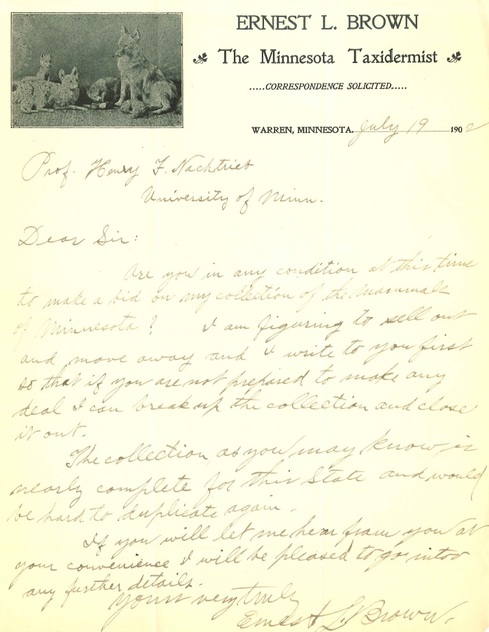 ERNEST L. BROWN
The Minnesota Taxidermist
.....CORRESPONDENCE SOLICITED.....
WARREN, MINNESOTA. July 19 190
Prof. Henry F. Nachtrieb
University of Minn.
Dear Sir:
Are you in any condition at this time
to make a bid on my collection of the Mammals
of Minnesota? I am figuring to sell out
and move away and I write to you first
so that if you are not prepared to make any
deal I can break up the collection and close
it out.
The collection as you may know is
nearly complete for this State and would
be hard to duplicate again.
If you will let me hear from you at
your convenience I will be pleased to go into
any further details.
Yours very truly
Ernest L. Brown.